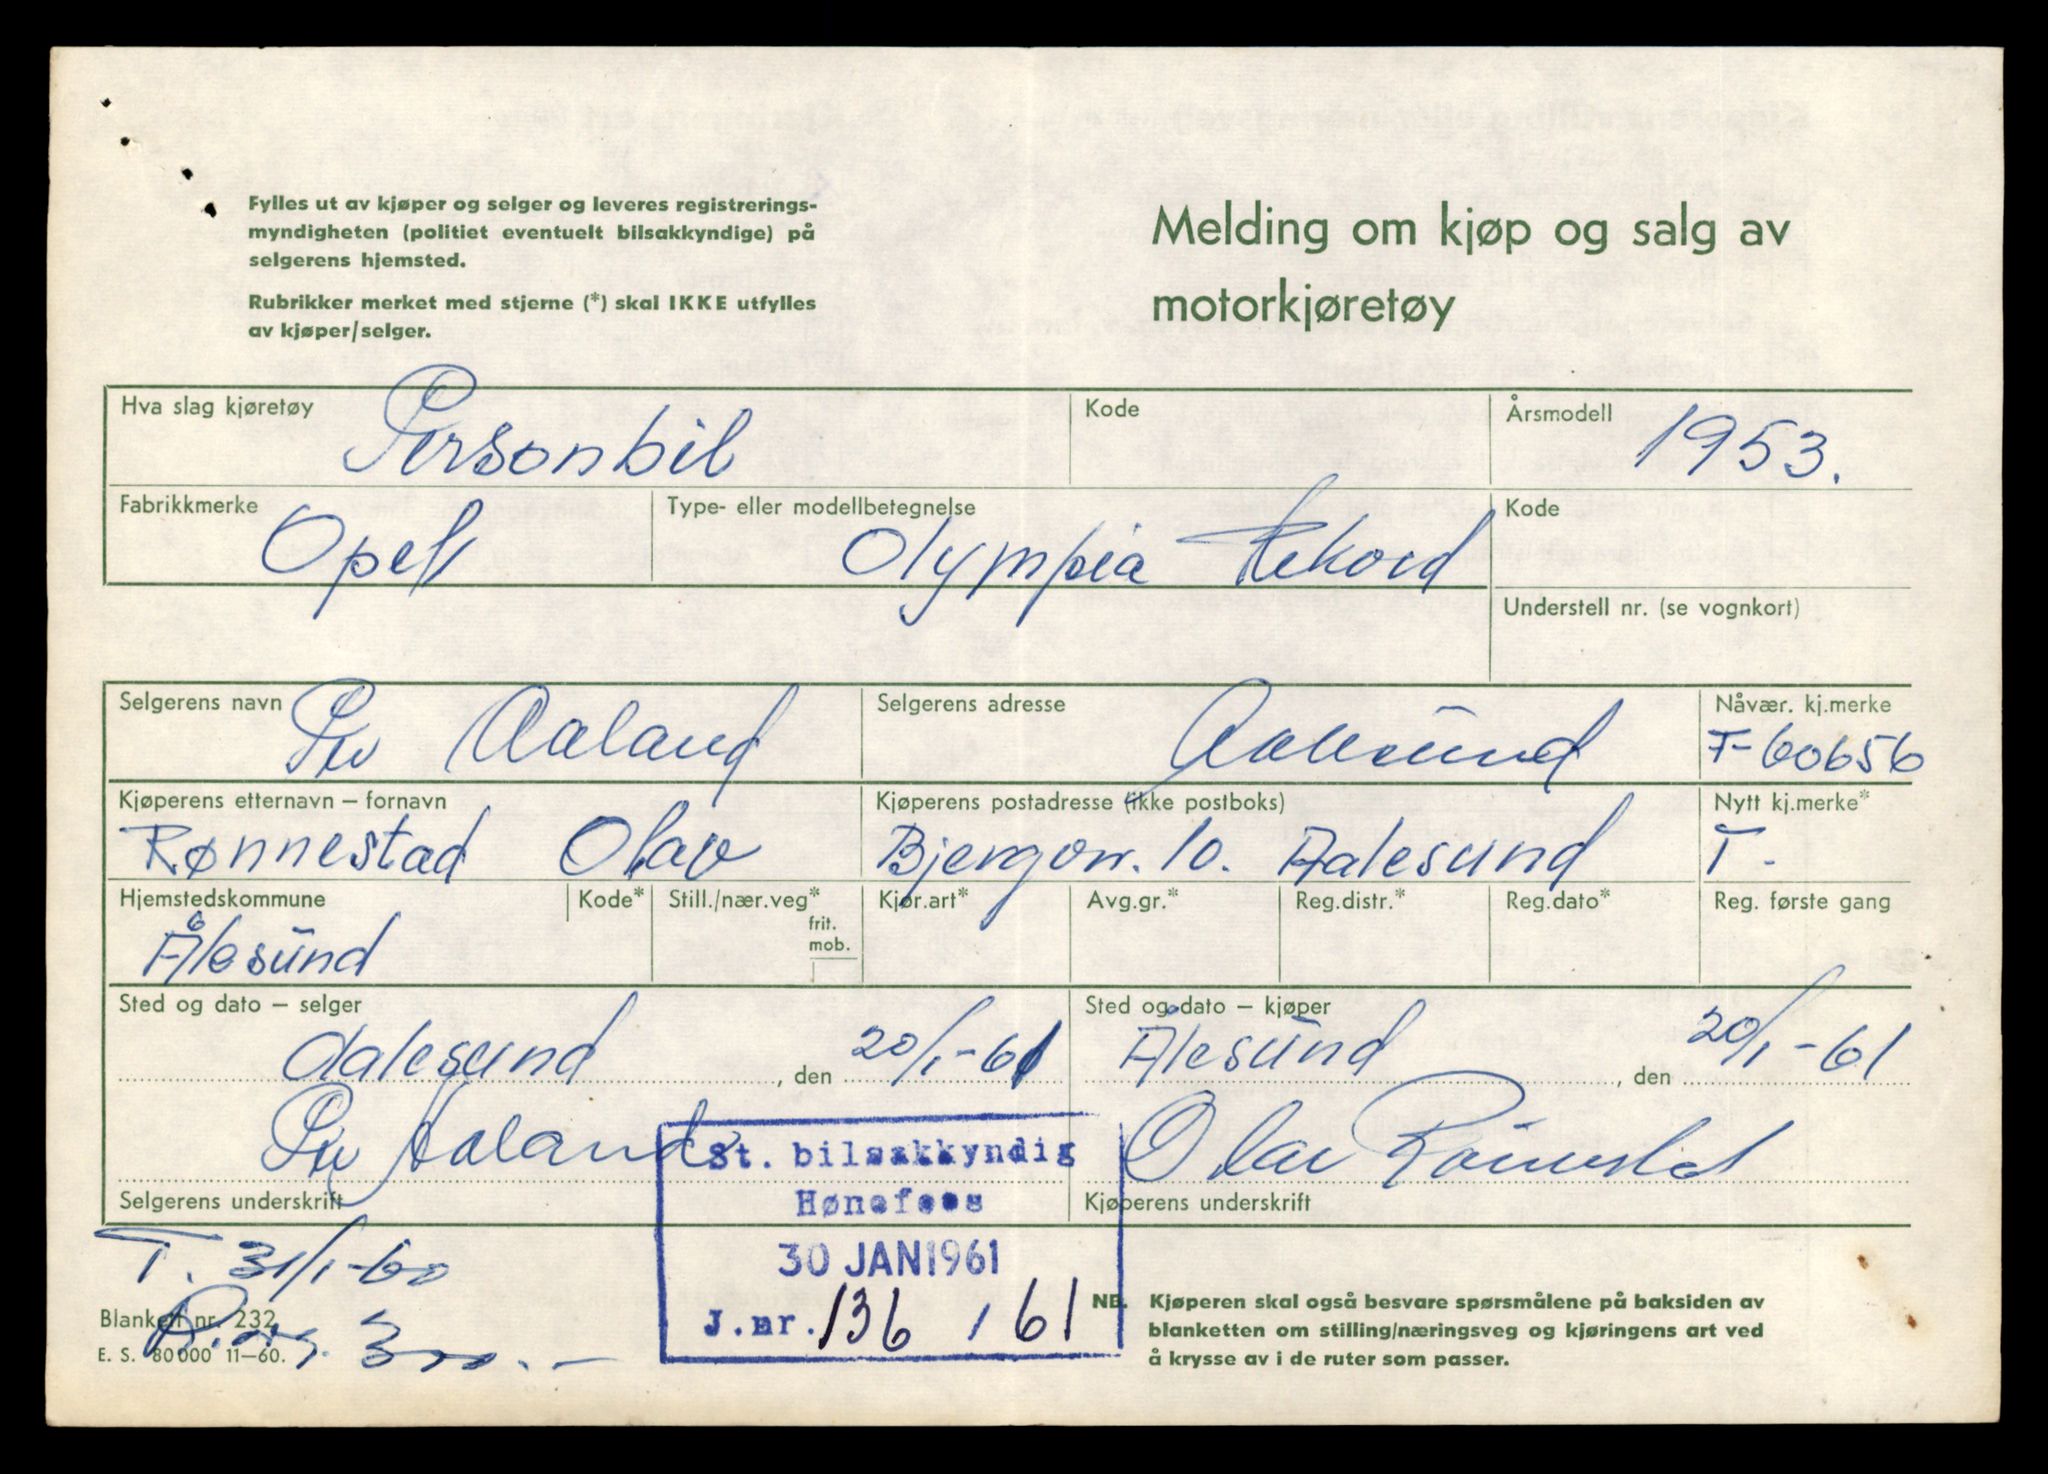 Fylles ut av kjøper og selger og leveres registrerings-
myndigheten (politiet eventuelt bilsakkyndige) på
selgerens hjemsted.
Rubrikker merket med stjerne (*) skal IKKE utfylles
av kjøper/selger.
Melding om kjøp og salg av
motorkjøretøy
Hva slag kjøretøy Personbil Kode Årsmodell 1953.
Fabrikkmerke Opel Type- eller modellbetegnelse Olympia Rekord Kode
Understell nr. (se vognkort)
Selgerens navn Per Aaland Selgerens adresse Aalesund Nåvær. kj.merke
F-60656
Kjøperens etternavn – fornavn Kjøperens postadresse (ikke postboks) Nytt kj.merke*
Rønnestad Olav 10. Aalesund T-
Hjemstedskommune Kode* Still./nær.veg* Kjør.art* Avg.gr.* Reg.distr.* Reg.dato* Reg. første gang
frit.
mob.
Ålesund
Sted og dato – selger Sted og dato – kjøper
Aalesund, den 20/1-61 Ålesund, den 20/1-61
Per Aaland Olav
Selgerens underskrift Kjøperens underskrift
St. bilsakkyndig
Hønefoss
30 JAN 1961
J.nr. 136 / 61
T. 31/1-60
Blankett nr. 232
E. S. 80 000 11–60.
NB. Kjøperen skal også besvare spørsmålene på baksiden av
blanketten om stilling/næringsveg og kjøringens art ved
å krysse av i de ruter som passer.